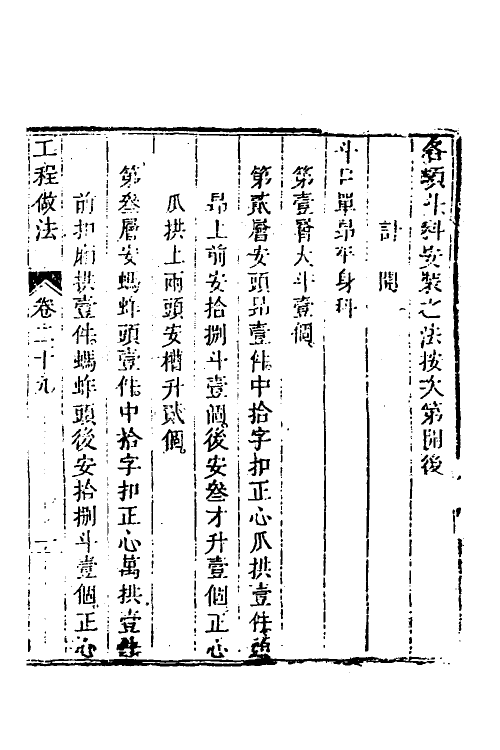 各項斗科安裝之法按次第開後
計開
斗口單昂平身科
第壹層大斗壹個
第貳層安頭昂壹件中拾字扣正心瓜拱壹件頭
昂上前安拾捌斗壹個後安叄才升壹個正心
瓜拱上兩頭安槽升貳個
第叄層安螞蚱頭壹件中拾字扣正心萬拱壹件
前扣廂拱壹件螞蚱頭後安拾捌斗壹個正心
工程做法 卷二十九 一